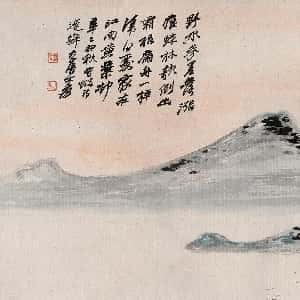 野水參差落漲
痕疏林欹倒出
霜根扁舟一棹
歸何處家在
江南黃葉邨
卯秋